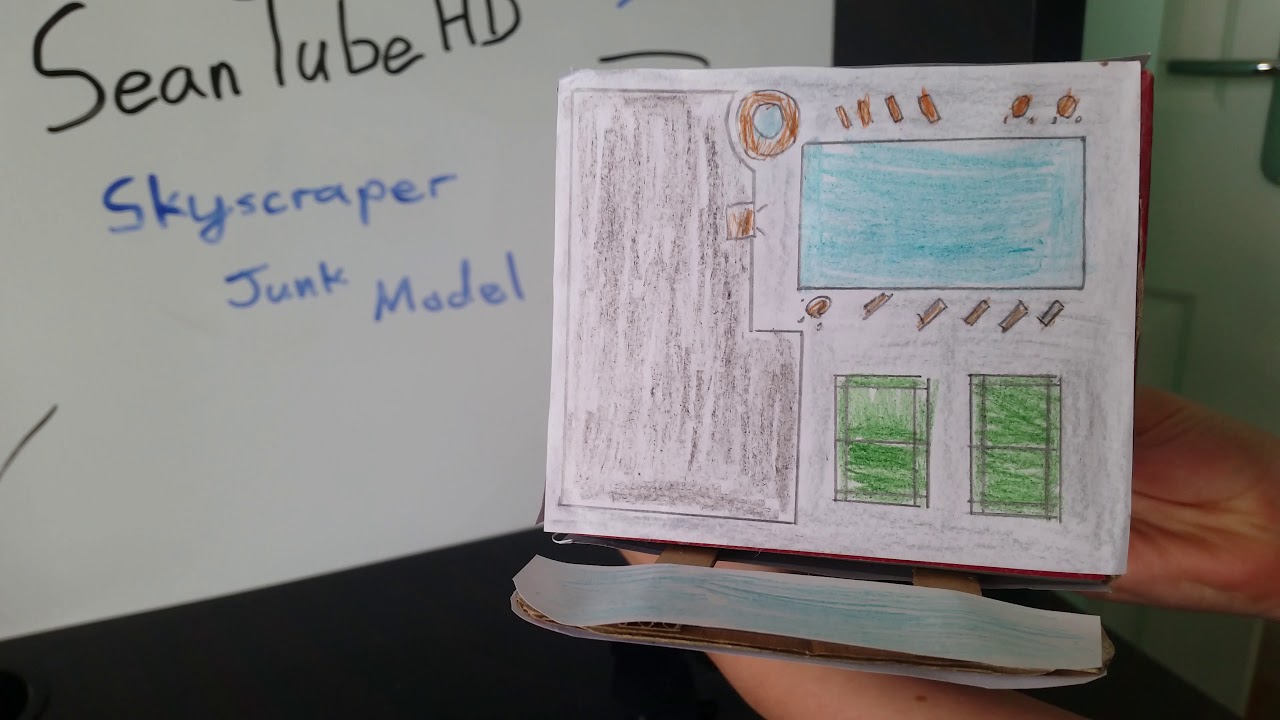 SeanTubeHD
Skyscraper
Junk Model